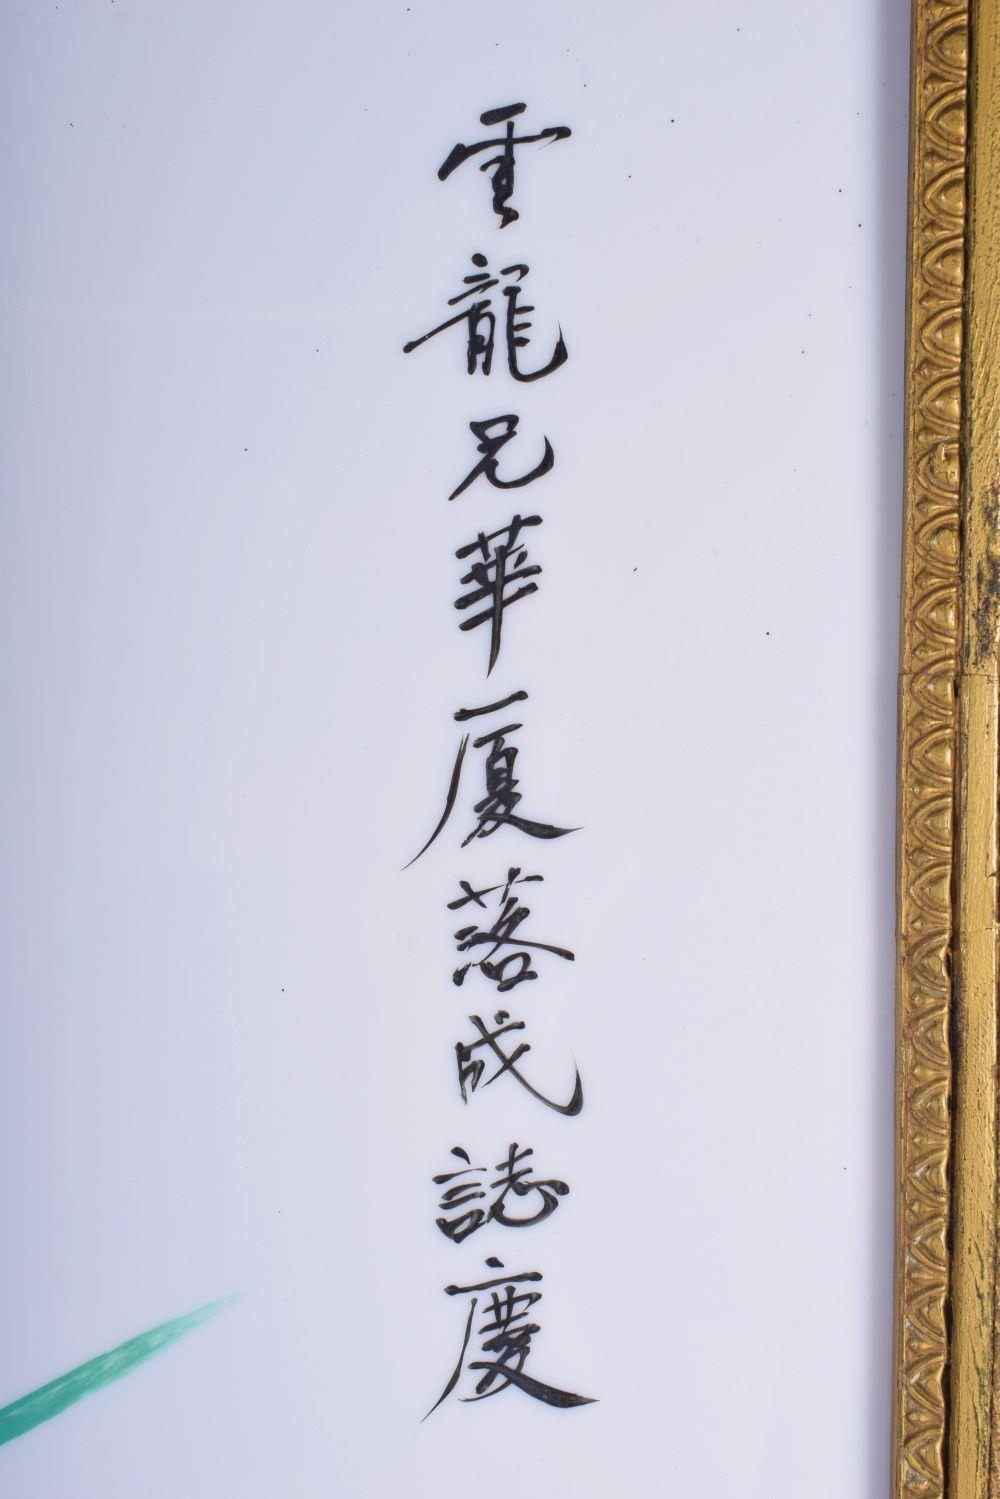 雲龍兄華厦落成誌慶